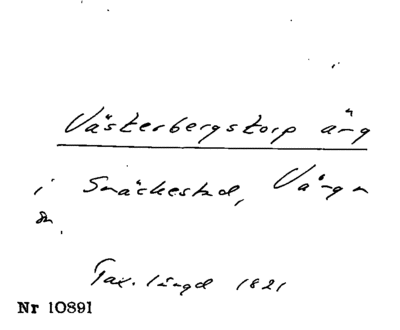 Västerbergstorp äng
i Snäckestad, Vånga
sn.
Tax.längd 1821
Nr 10891